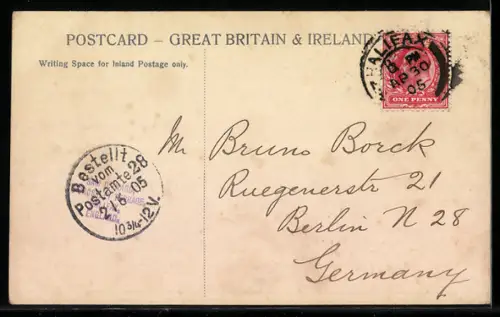 POSTCARD – GREAT BRITAIN & IRELAND
Writing Space for Inland Postage only.
HALIFAX
30
05
ONE PENNY
Mr Bruno Borck
Ruegenerstr 21
Berlin N 28
Germany
Bestellt
vom
Postamte 28
2/6 05
10¾-12V.
ENGLAND